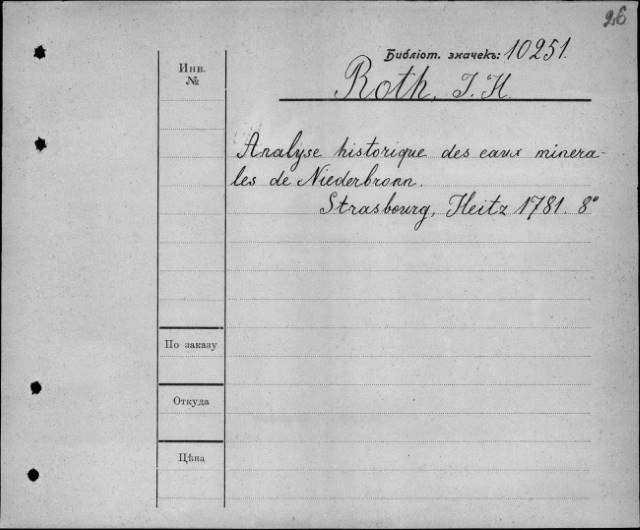 26
Библіот. значекъ: 10251.
Инв.
№
Roth, J. H.
Analyse historique des eaux minera-
les de Niederbronn.
Strasbourg, Heitz 1781. 8°
По заказу
Откуда
Цѣна